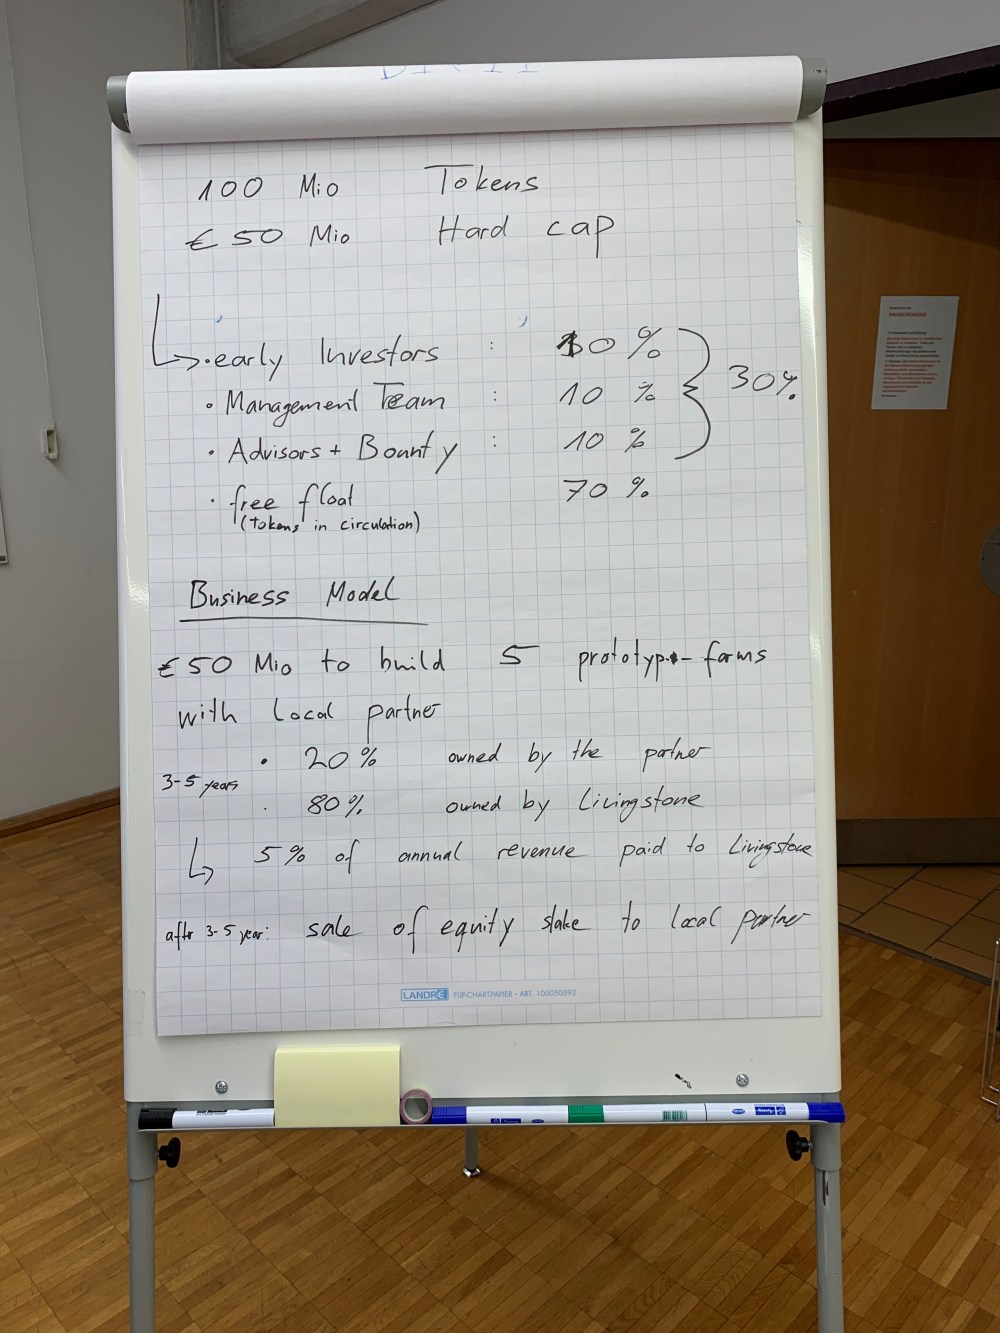 100 Mio Tokens
€ 50 Mio Hard cap
• early Investors : 10 %
• Management Team : 10 %
30%
• Advisors + Bounty : 10 %
• free float 70 %
(tokens in circulation)
Business Model
€ 50 Mio to build 5 prototyp - farms
with local partner
• 20% owned by the partner
3-5 years
• 80% owned by Livingstone
5% of annual revenue paid to Livingstone
after 3-5 year: sale of equity stake to local partner
LANDRÉ FLIP-CHART-PAPIER • ART. 100050592
HAUSORDNUNG